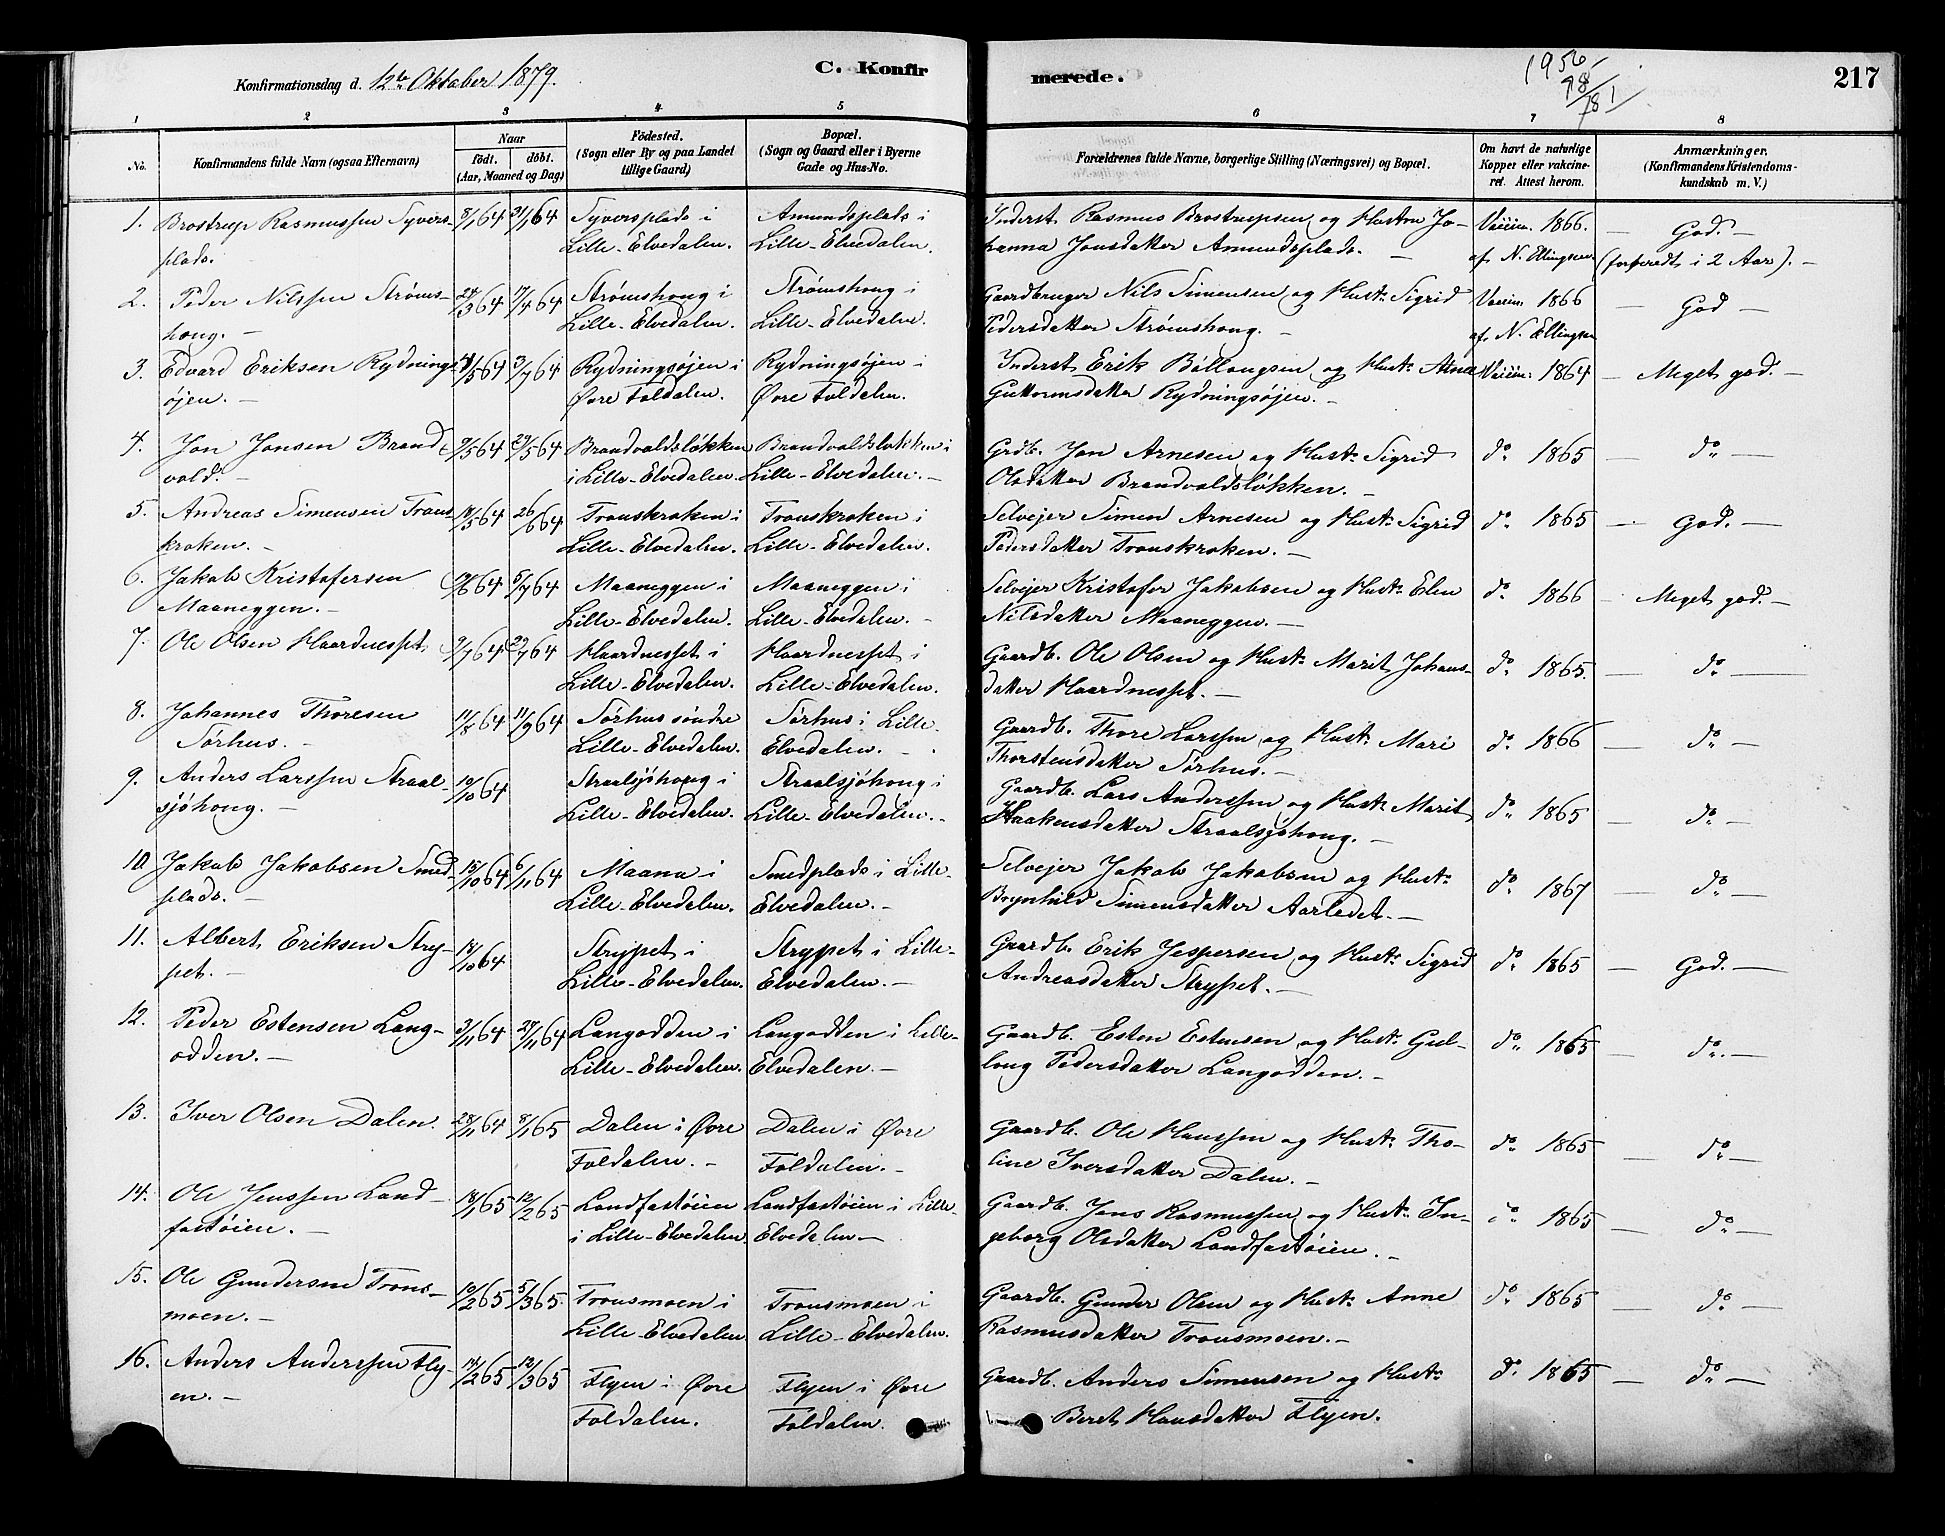 Konfirmationsdag d. 12te Oktober 1879.
C. Konfirmerede.
1956
78
181
217
1 2 3 4 5 6 7 8
No.
Konfirmandens fulde Navn (ogsaa Efternavn)
Naar
födt. döbt.
(Aar, Maaned og Dag)
Födested.
(Sogn eller By og paa Landet
tillige Gaard)
Bopæl.
(Sogn og Gaard eller i Byerne
Gade og Hus-No.
Forældrenes fulde Navne, borgerlige Stilling (Næringsvei) og Bopæl.
Om havt de naturlige
Kopper eller vakcine-
ret. Attest herom.
Anmærkninger.
(Konfirmandens Kristendoms-
kundskab m. V.)
1. Brostrup Rasmussen Syvers- 8/1 64 31/1 64 Syversplads i Amundsplads i Inderst Rasmus Brostrupsen og Hustru Jo- Vaccin. 1866. — God. —
plads. Lille-Elvedalen. Lille-Elvedalen. hanna Jonsdatter Amundsplads. — af N. Ellingsen (forberedt i 2 Aar). —
2. Peder Nilssen Strøms- 24/3 64 17/4 64 Strømshoug i Strømshoug i Gaardbruger Nils Simensen og Hust: Sigrid Vaccin. 1866 — God —
houg. — Lille-Elvedalen. Lille-Elvedalen. Pedersdatter Strømshoug. — af N. Ellingsen
3. Edvard Eriksen Rydnings- /5 64 3/7 64 Rydningsøjen i Rydningsøjen i Inderst Erik Botlougsen og Hust: Vaccin. 1864 — Meget god. —
øjen. — Øvre Foldalen. Øvre Foldalen. Guttormsdatter Rydningsøjen. —
4. Jon Jonsen Brand- 9/5 64 29/5 64 Brandvoldsløkken Brandvoldsløkken i Grdb. Jon Arnesen og Hust: Sigrid do 1865 — do —
vold. — i Lille-Elvedalen. Lille-Elvedalen. — Olsdatter Brandvoldsløkken. —
5. Andreas Simensen Trons- 18/5 64 26/6 64 Tronskroken i Tronskroken i Selvejer Simen Arnesen og Hust: Sigrid do 1865 — God. —
kroken. — Lille-Elvedalen. Lille-Elvedalen. Pedersdatter Tronskroken. —
6. Jakob Kristofersen /6 64 5/7 64 Maaneggen i Maaneggen i Selvejer Kristofer Jakobsen og Hust: Elen do 1866 — Meget god. —
Maaneggen. — Lille-Elvedalen. Lille-Elvedalen. — Nilsdatter Maaneggen. —
7. Ole Olsen Haardnesset 9/7 64 29/7 64 Haardnesset i Haardnesset i Gaardb. Ole Olsen og Hust: Marit Johans- do 1865. — do —
Lille-Elvedalen. Lille-Elvedalen. datter Haardnesset. —
8. Johannes Thoresen 14/8 64 11/9 64 Sørhus søndre Sørhus i Lille- Gaardb. Thore Larssen og Hust: Mari do 1866 — do —
Sørhus. — Lille-Elvedalen. Elvedalen. — Thorstensdatter Sørhus. —
9. Anders Larssen Straal- 10/10 64 Straalsjøhoug i Straalsjøhoug i Gaardb. Lars Anderssen og Hust: Marit do 1865 — do —
sjøhoug. — Lille-Elvedalen. Lille-Elvedalen. — Haakensdatter Straalsjøhoug. —
10. Jakob Jakobsen Smed- 15/10 64 6/11 64 Maana i Smedplads i Lille- Selvejer Jakob Jakobsen og Hust: do 1867 — do —
plads. — Lille-Elvedalen. Elvedalen. — Brynhild Simensdatter Aarledet. —
11. Albert Eriksen Stry- 14/10 64 Strypet i Strypet i Lille- Gaardb. Erik Jespersen og Hust: Sigrid do 1865 — God. —
pet. — Lille-Elvedalen. Elvedalen. — Andreasdatter Strypet. —
12. Peder Estensen Lang- 3/11 64 27/11 64 Langodden i Langodden i Lille- Gaardb. Esten Estensen og Hust: Gul- do 1865 — do. —
odden. — Lille-Elvedalen. Elvedalen. — loug Pedersdatter Langodden. —
13. Iver Olsen Dalen. 28/11 64 8/1 65 Dalen i Øvre Dalen i Øvre Gaardb. Ole Hanssen og Hust: Tho- do 1865 — do —
Foldalen. — Foldalen. — line Iversdatter Dalen. —
14. Ole Jenssen Land- 18/1 65 12/2 65 Landfastøien Landfastøien i Lille- Gaardb. Jens Rasmussen og Hust: In- do 1865 — do —
fastøien. — i Lille-Elvedalen. Elvedalen — geborg Olsdatter Landfastøien. —
15. Ole Gundersen Trons- 10/2 65 5/3 65. Tronsmoen i Tronsmoen i Gaardb. Gunder Olsen og Hust: Anne do 1865 — do —
moen. — Lille-Elvedalen Lille-Elvedalen. Rasmusdatter Tronsmoen. —
16. Anders Anderssen Fly- 14/2 65 12/3 65 Flyen i Øvre Flyen i Øvre Gaardb. Anders Simensen og Hust: do 1865 — do —
en. — Foldalen. Foldalen. Beret Hansdatter Flyen.